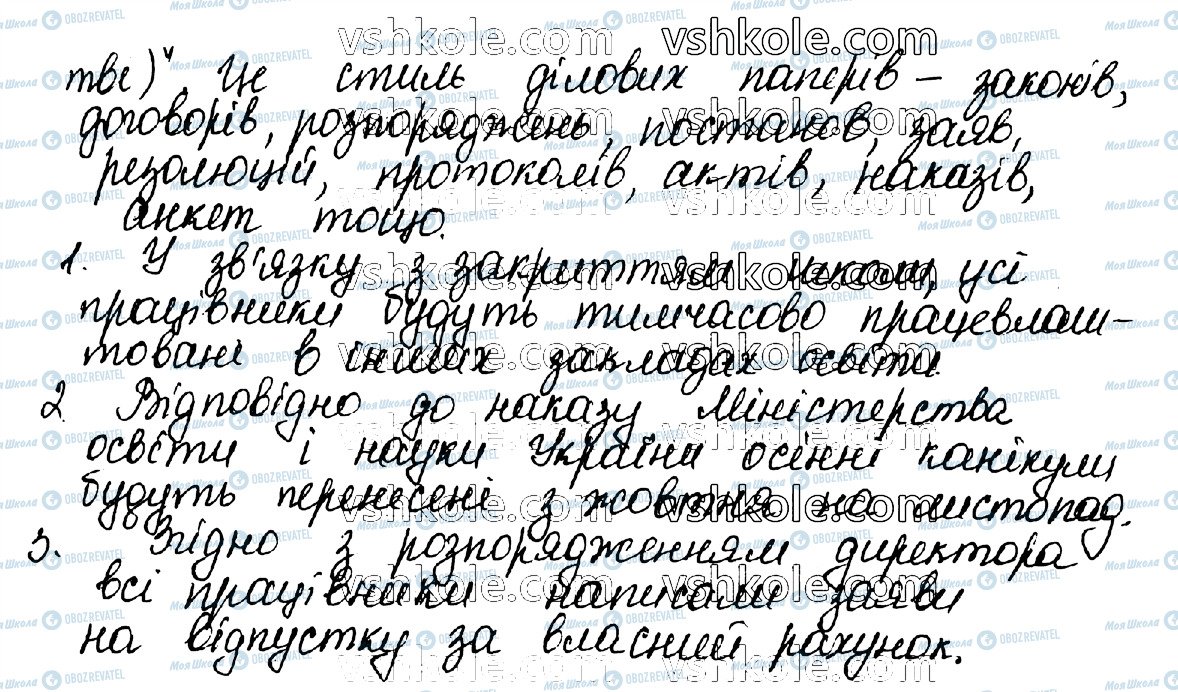 тві). Це стиль ділових паперів – законів,
договорів, розпоряджень, постанов, заяв,
резолюцій, протоколів, актів, наказів,
анкет тощо.
1. У зв'язку з закриттям школи, усі
працівники будуть тимчасово працевлаш-
товані в інших закладах освіти.
2 Відповідно до наказу Міністерства
освіти і науки України осінні канікули
будуть перенесені з жовтня на листопад.
3. Згідно з розпорядженням директора
всі працівники написали заяви
на відпустку за власний рахунок.